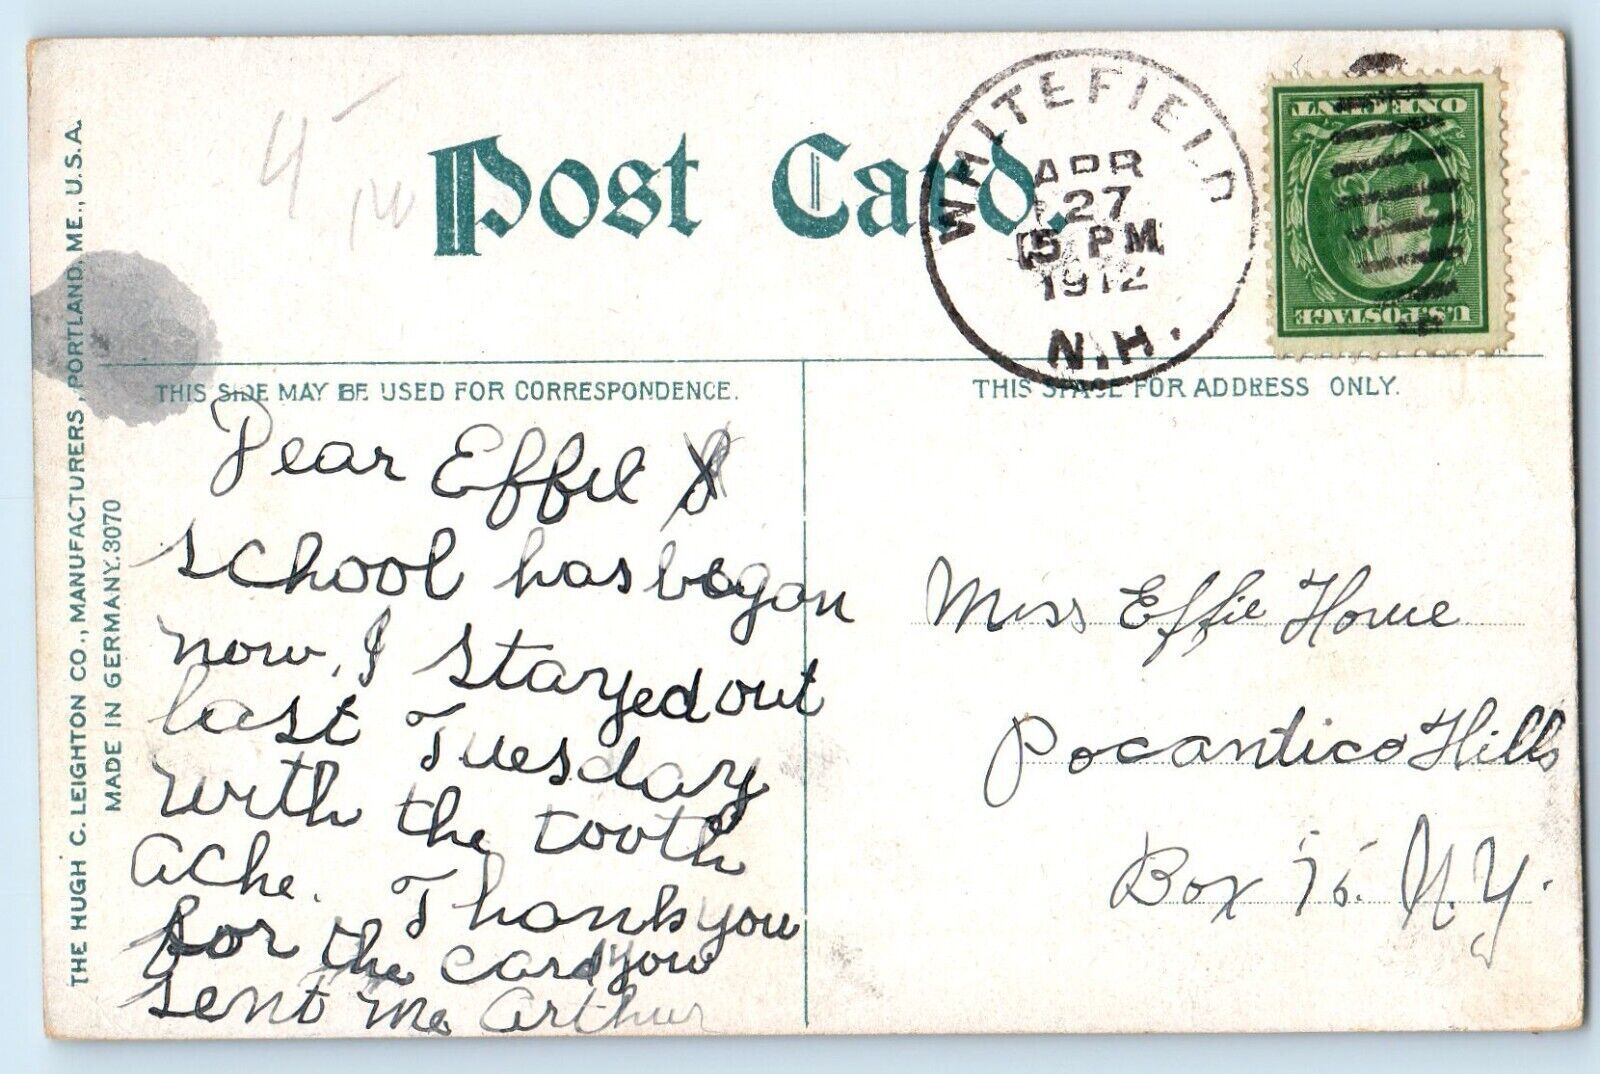 4
Post Card.
WHITEFIELD
APR
27
5 PM
1912
N.H.
ONE CENT
U.S. POSTAGE
THIS SIDE MAY BE USED FOR CORRESPONDENCE.
THIS SPACE FOR ADDRESS ONLY.
THE HUGH C. LEIGHTON CO., MANUFACTURERS, PORTLAND, ME., U.S.A.
MADE IN GERMANY. 3070
Dear Effie
school has began
now, I stayed out
last Tuesday
with the tooth
ache. Thank you
for the card you
sent me Arthur
Miss Effie Howe
Pocantico Hills
Box N.Y.